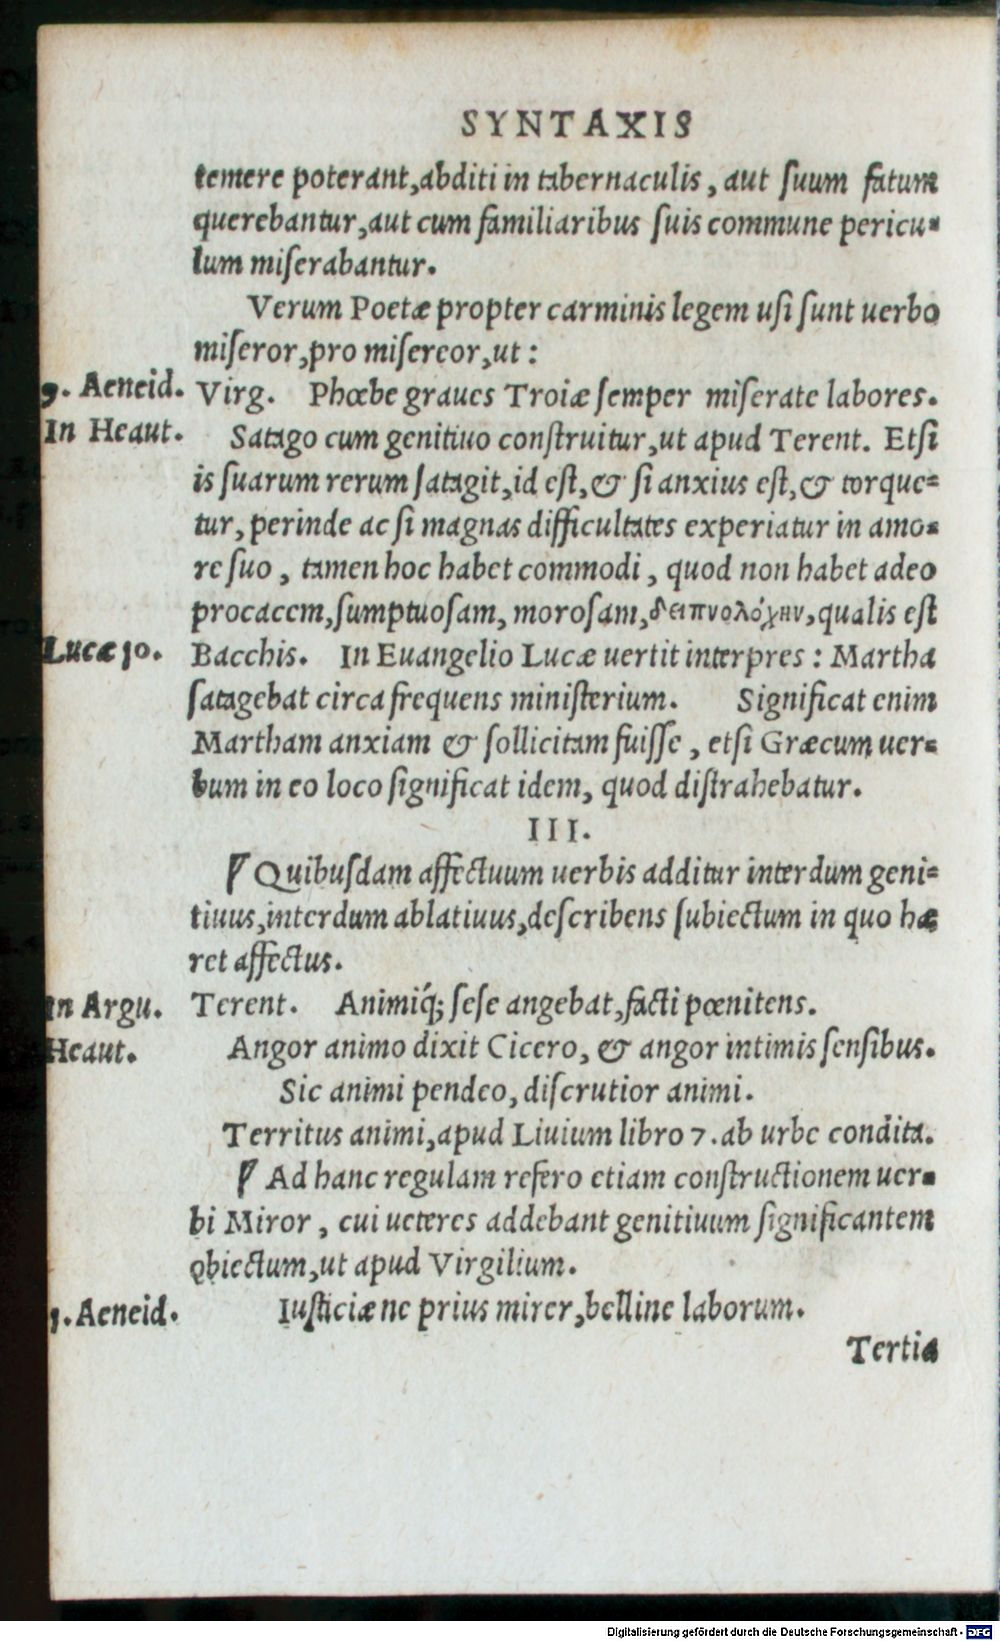 SYNTAXIS
temere poterant,abditi in tabernaculis, aut ſuum fatum
querebantur,aut cum familiaribus ſuis commune pericu-
lum miſerabantur.
Verum Poetæ propter carminis legem uſi ſunt uerbo
miſeror,pro miſereor,ut:
9. Aeneid. Virg. Phœbe graues Troiæ ſemper miſerate labores.
In Heaut. Satago cum genitiuo conſtruitur,ut apud Terent. Etſi
is ſuarum rerum ſatagit,id eſt,& ſi anxius eſt,& torque-
tur, perinde ac ſi magnas difficultates experiatur in amo-
re ſuo, tamen hoc habet commodi, quod non habet adeo
procacem,ſumptuoſam, moroſam,δειπνολόχην,qualis eſt
Lucæ 10. Bacchis. In Euangelio Lucæ uertit interpres: Martha
ſatagebat circa frequens miniſterium. Significat enim
Martham anxiam & ſollicitam fuiſſe, etſi Græcum uer-
bum in eo loco ſignificat idem, quod diſtrahebatur.
III.
Quibuſdam affectuum uerbis additur interdum geni-
tiuus,interdum ablatiuus,deſcribens ſubiectum in quo hæ
ret affectus.
In Argu. Terent. Animiq́; ſeſe angebat,facti pœnitens.
Heaut. Angor animo dixit Cicero, & angor intimis ſenſibus.
Sic animi pendeo, diſcrutior animi.
Territus animi,apud Liuium libro 7. ab urbe condita.
Ad hanc regulam refero etiam conſtructionem uer-
bi Miror, cui ueteres addebant genitiuum ſignificantem
obiectum,ut apud Virgilium.
1. Aeneid. Iuſticiæ ne prius mirer,belline laborum.
Tertia
Digitalisierung gefördert durch die Deutsche Forschungsgemeinschaft - DFG